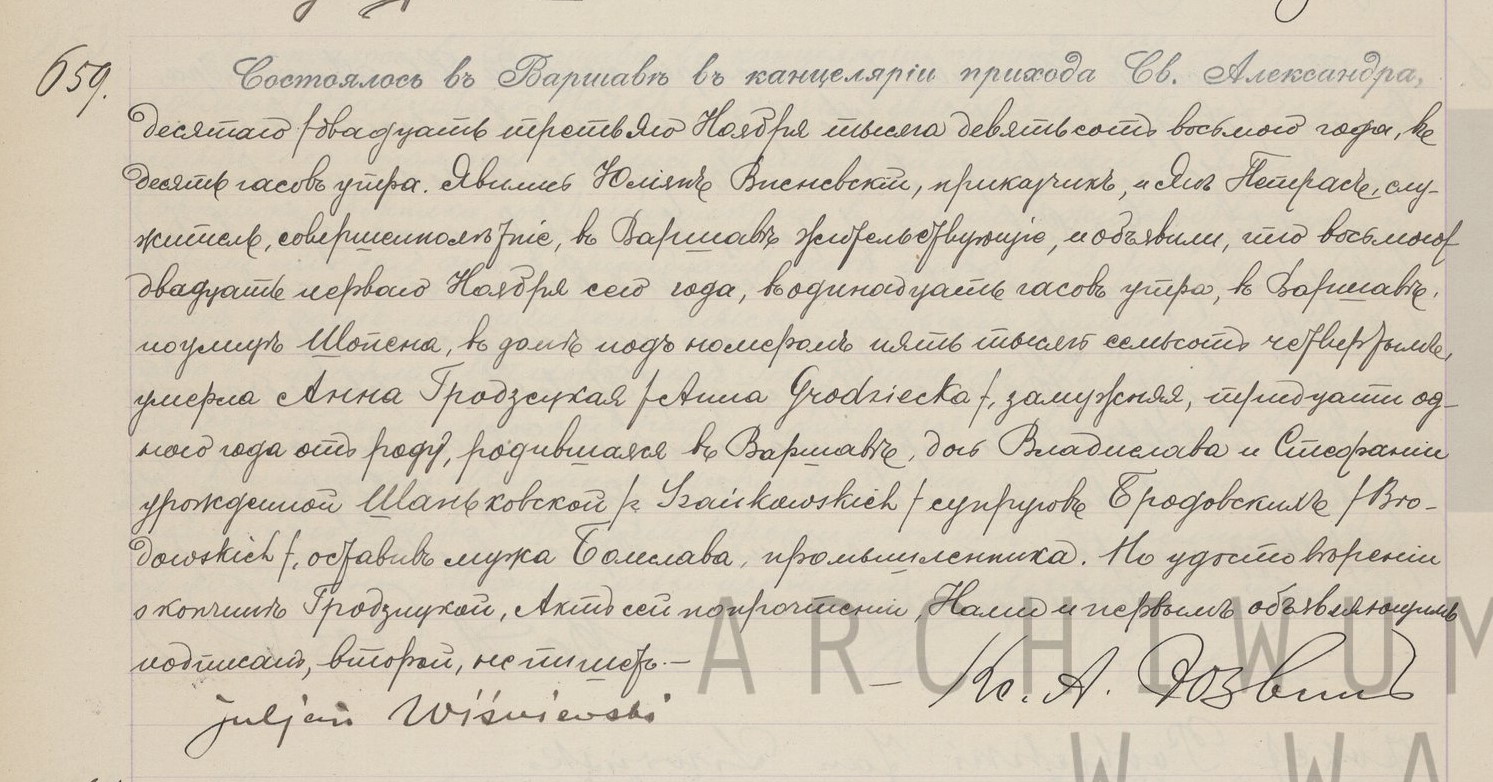 659.
Состоялось въ Варшавѣ въ канцеляріи прихода Св. Александра,
десятаго /двадцать третьяго Ноября тысяча девятьсотъ восьмого года, въ
десять часовъ утра. Явились Юліянъ Висневскій, приказчикъ, и Янъ Петрасъ, слу-
житель, совершеннолѣтніе, въ Варшавѣ жительствующіе, и объявили, что восьмого/
двадцать перваго Ноября сего года, въ одинадцать часовъ утра, въ Варшавѣ,
по улицѣ Шопена, въ домѣ подъ номеромъ пять тысячъ семьсотъ четвертымъ,
умерла Анна Гродзецкая /Anna Grodziecka/, замужняя, тридцати од-
ного года отъ роду, родившаяся въ Варшавѣ, дочь Владислава и Стефаніи
урожденной Шаньковской /z Szańkowskich/ супруговъ Бродовскихъ /Bro-
dowskich/, оставивъ мужа Болеслава, промышленника. По удостовѣреніи
о кончинѣ Гродзецкой, Актъ сей по прочтеніи, Нами и первымъ объявляющимъ
подписанъ, второй, не пишетъ.—
— Кс. А.
juljan Wiśniewski
ARCHIWUM
W WA